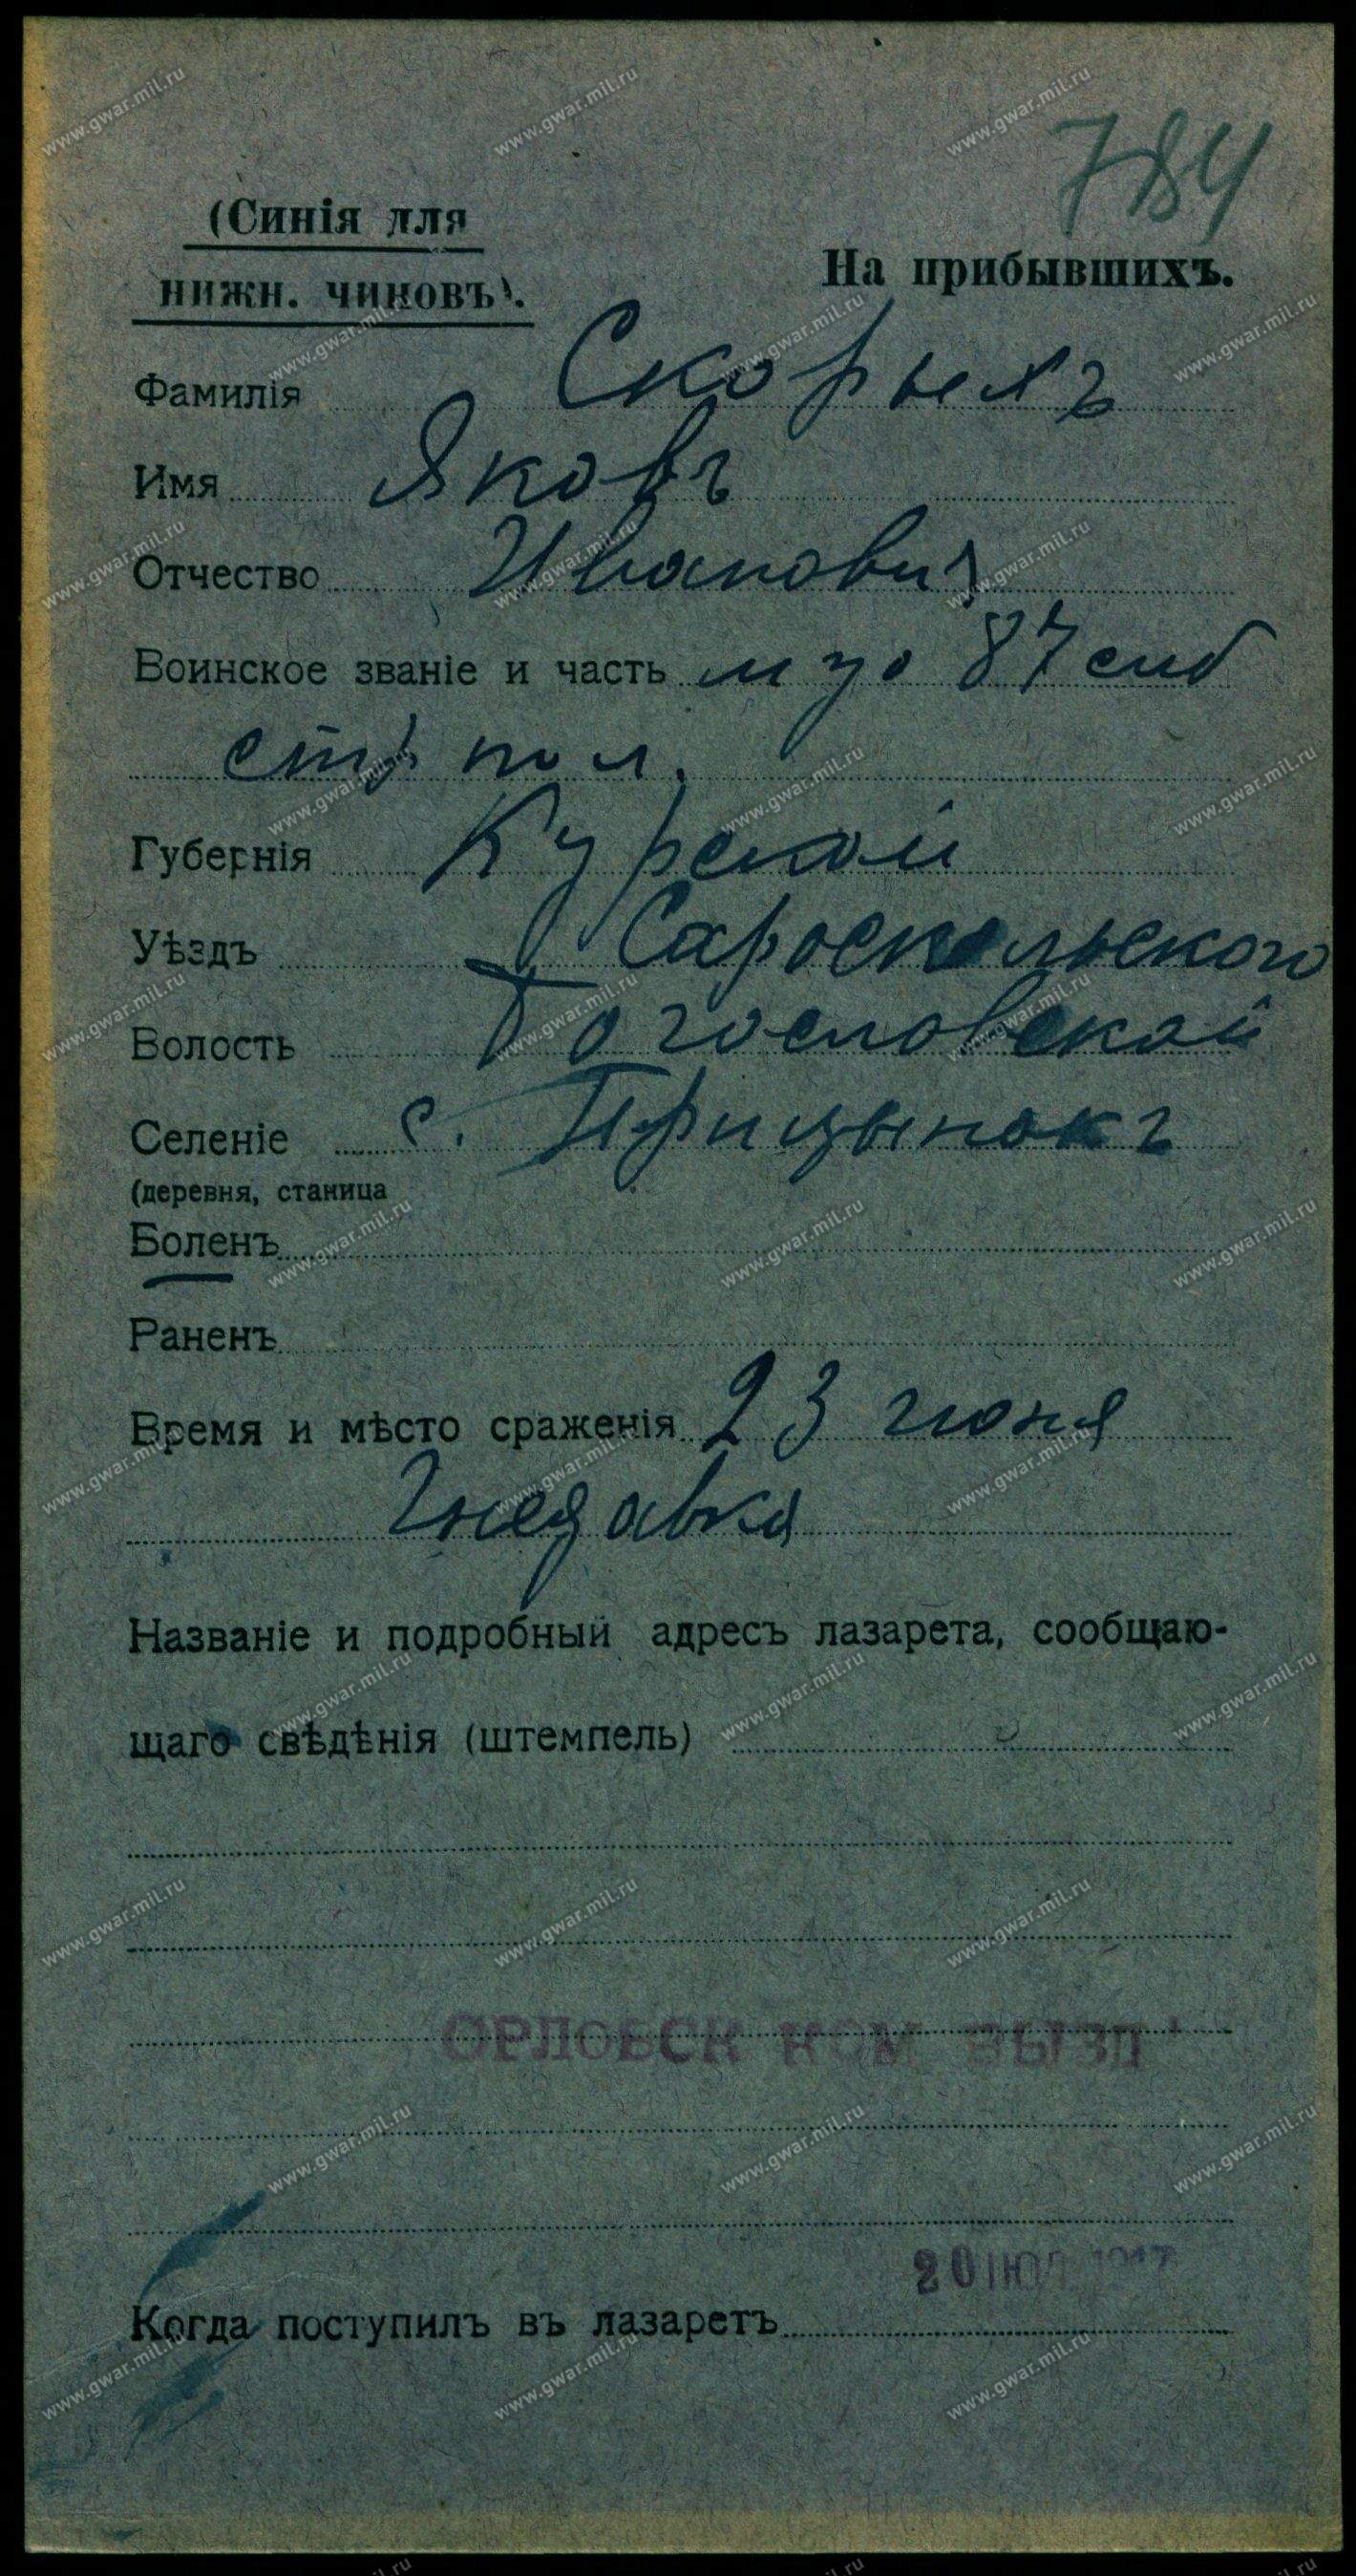 784
(Синія для
нижн. чиновъ).
На прибывшихъ.
Фамилія Скорыхъ
Имя Яковъ
Отчество Иванович
Воинское званіе и часть 87 сиб
стр. пол.
Губернія Курской
Уѣздъ Сароскольского
Волость Богословской
Селеніе с. Прицынокъ
(деревня, станица
Боленъ
Раненъ
Время и мѣсто сраженія 23 июня
Названіе и подробный адресъ лазарета, сообщаю-
щаго свѣдѣнія (штемпель)
ОРЛОВСК КОМ
20 ІЮЛ 1917
Когда поступилъ въ лазаретъ